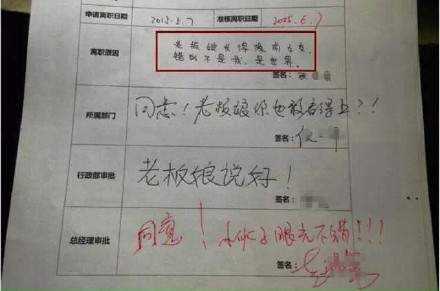 申请离职日期 2015.5.7 准核离职日期 2015.6.7
离职原因
老板娘长得像前女友,
错的不是我,是世界。
签名:
所属部门 同志!老板娘你也敢看得上?!
签名:
行政部审批 老板娘说好!
签名:
总经理审批 同意!小伙子眼光不错!!!
签名: